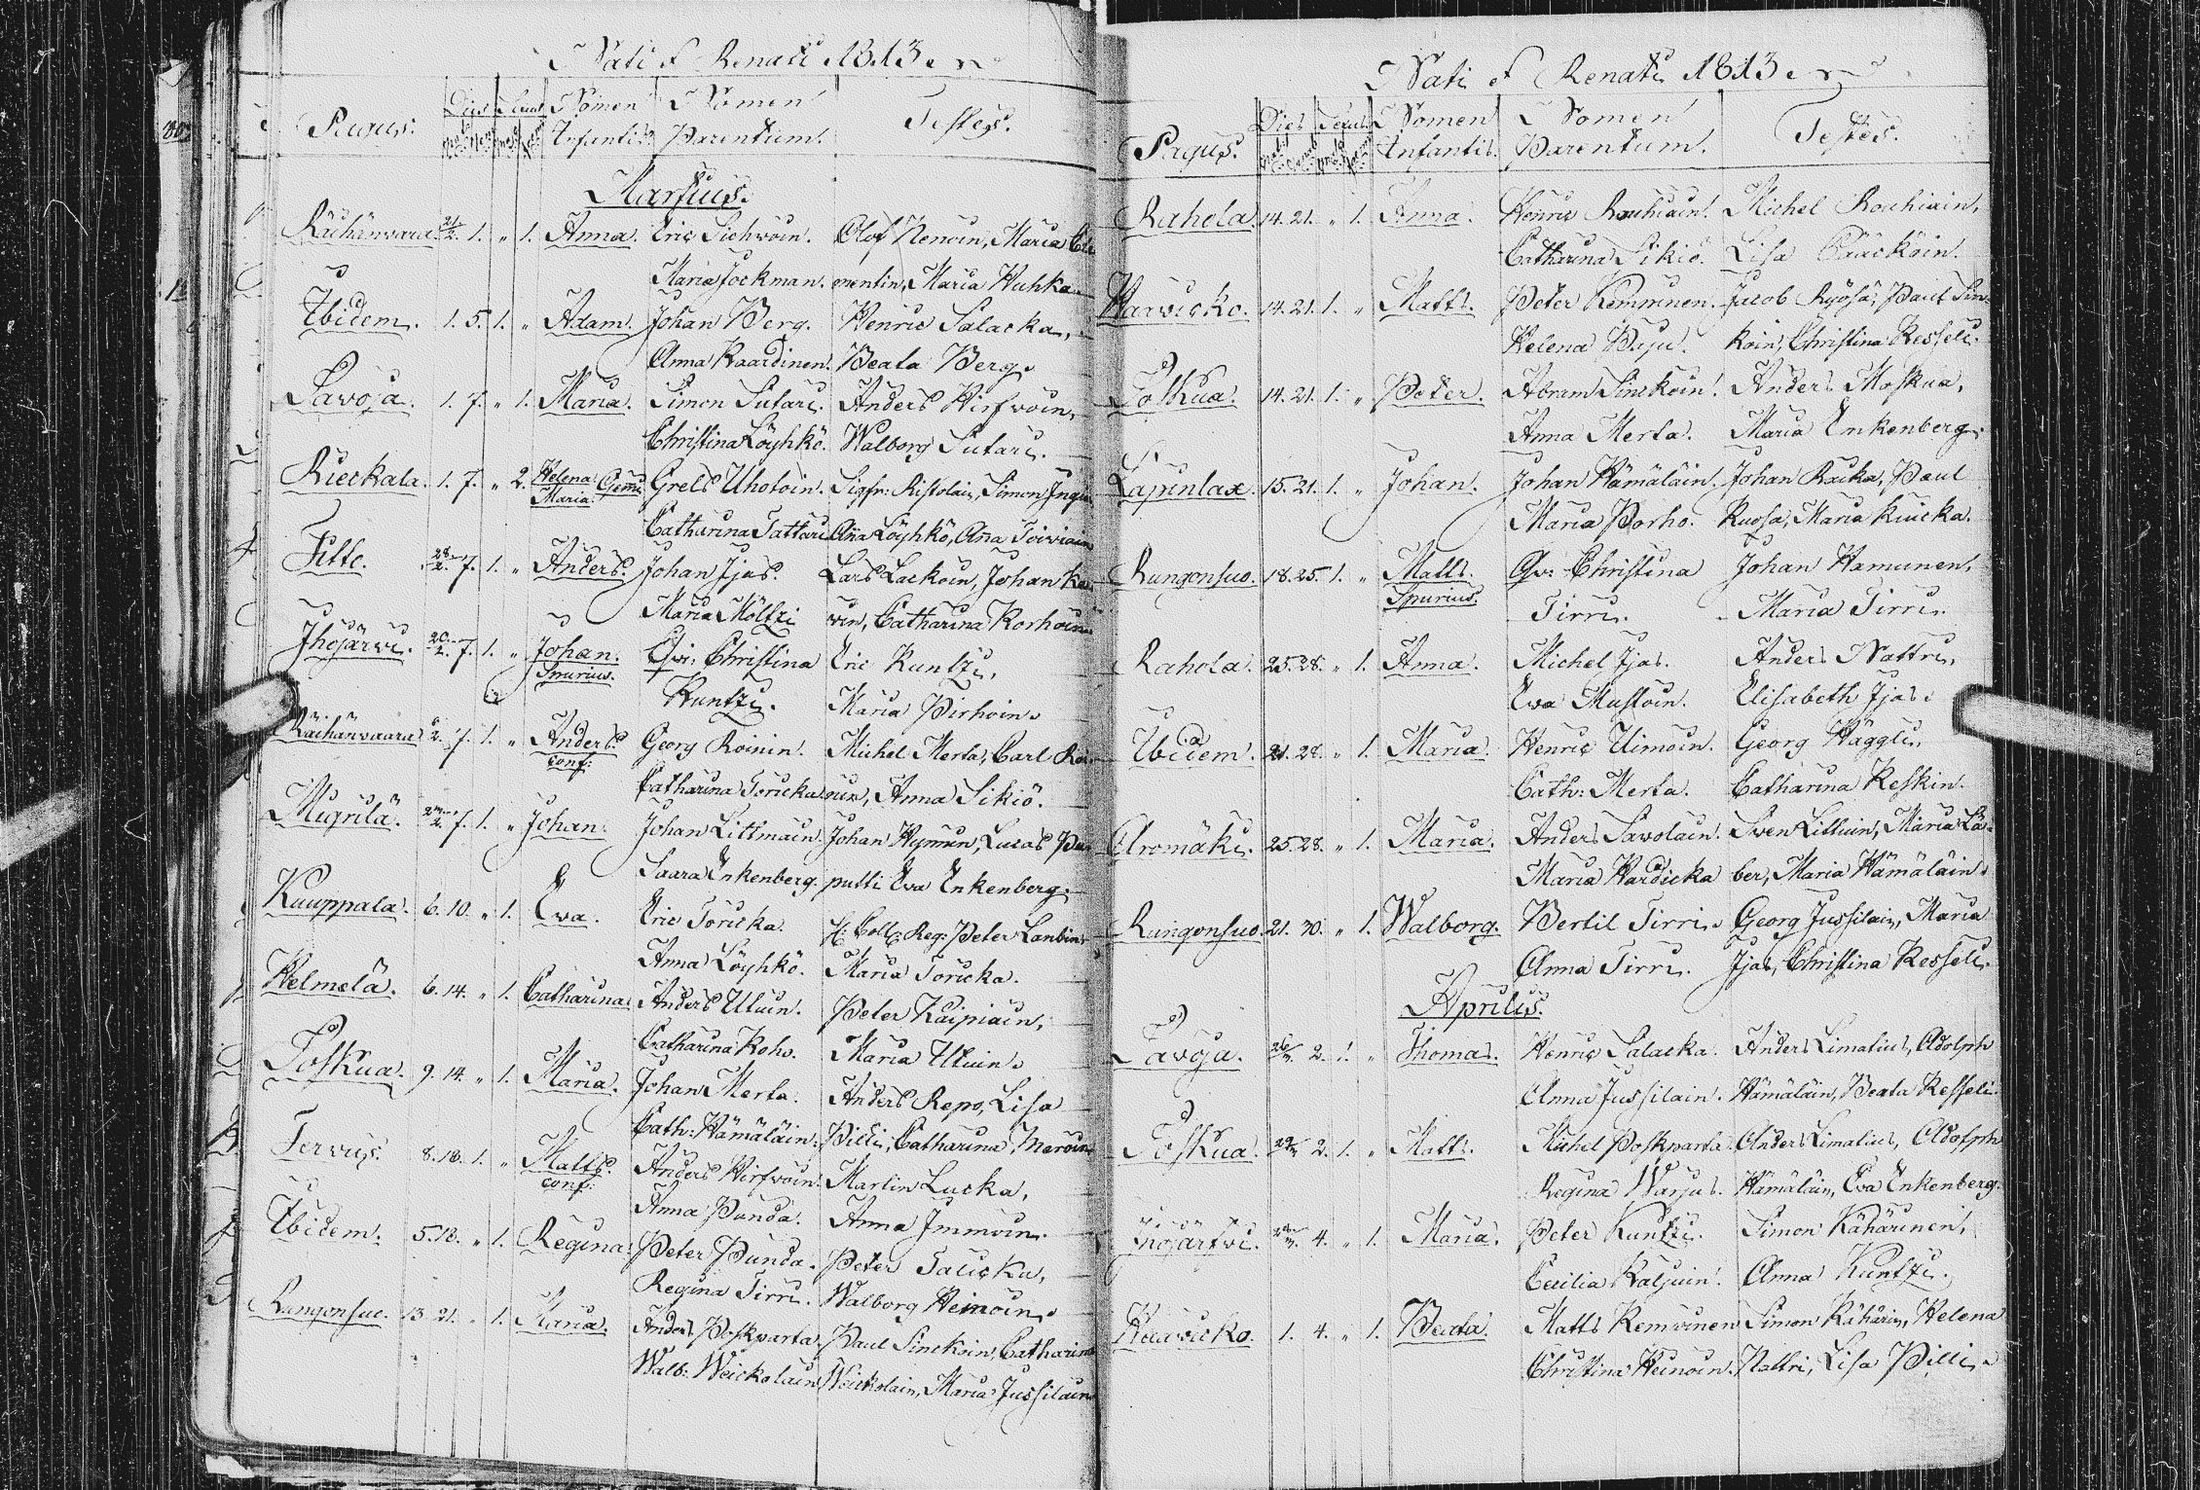 Nati et Renati 1813.
Pagus. Dies Sexus Nomen Infantis. Nomen Parentum. Testes.
Martius.
Räihänvara. 21/2. 1. " 1. Anna. Eric Sichvoin. Olof Nenoin, Maria Cle
Maria Jockman. mentin, Maria Huhka
Ibidem. 1. 5. 1. " Adam. Johan Berg. Henric Salacka,
Anna Kaardinen. Beata Berg.
Savoja. 1. 7. " 1. Maria. Simon Sutari. Anders Hirfvoin,
Christina Löyhkö. Walborg Sutari.
Rieckala. 1. 7. " 2. Helena Maria Gem: Grels Uhotoin. Sigfr: Ristolain, Simon Ingi
Catharina Tattari Aña Löyhkö, Aña Toiviain
Titte. 28/2. 7. 1. " Anders. Johan Ijas. Lars Lackoin, Johan Ka
Maria Möltzi vin, Catharina Korhoin
Ihojärvi. 20/2. 7. 1. " Johan. Spurius. Qvi: Christina Eric Kuntzi,
Kuntzi. Maria Pirhoin.
Räihänvaara 6/2. 7. 1. " Anders. conf: Georg Roinin. Michel Merta, Carl Roi
Catharina Toricka nin, Anna Sikiö.
Migrilä. 24/2. 7. 1. " Johan. Johan Littmain. Johan Hynnin, Lucas Pu
Saara Enkenberg. putti Eva Enkenberg.
Kuuppala. 6. 10. " 1. Eva. Eric Toricka. H: Coll: Reg: Peter Lanbin
Anna Löyhkö. Maria Toricka.
Helmelä. 6. 14. " 1. Catharina. Anders Utuin. Peter Kaipiain,
Catharina Koho. Maria Utuin.
Poskua. 9. 14. " 1. Maria. Johan Merta. Anders Repo, Lisa
Cath: Hämäläin. Pilli, Catharina Maroin
Tervus. 8. 18. 1. " Matts. conf: Anders Hirfvoin. Martin Lucka,
Anna Punda. Anna Immoin.
Ibidem. 5. 18. " 1. Regina. Peter Punda. Peter Talicka,
Regina Tirri. Walborg Heinoin.
Rungonsuo. 13. 21. " 1. Maria. Anders Poskparta. Paul Sinckoin, Catharina
Walb: Weickolain Weickolain, Maria Jussilain
Nati et Renati 1813.
Pagus. Dies Sexus Nomen Infantis. Nomen Parentum. Testes.
Rahola. 14. 21. " 1. Anna. Henric Rouhiain. Michel Rouhiain,
Catharina Sikiö. Lisa Pääcköin.
Harvicko. 14. 21. 1. " Matts. Peter Kemmunen. Jacob Ryösä, Paul Sin
Helena Paju. koin, Christina Kesseli.
Poskua. 14. 21. 1. " Peter. Abram Sinckoin. Anders Moskua,
Anna Merta. Maria Enkenberg.
Lapinlax. 15. 21. 1. " Johan. Johan Hämäläin. Johan Racka, Paul
Maria Porho. Kuosa, Maria Kuicka.
Rungonsuo. 18. 25. 1. " Matts. Spurius. Qv: Christina Johan Hamunen,
Tirri. Maria Tirri.
Rahola. 25. 28. " 1. Anna. Michel Ijas. Anders Nattri,
Eva Mustoin. Elisabeth Ijas.
Ibidem. 21. 28. " 1. Maria. Henric Uimoin. Georg Häggli,
Cath: Merta. Catharina Keskin.
Elromäki. 25. 28. " 1. Maria. Anders Savolain. Sven Littuin, Maria Lä
Maria Hardicka ber, Maria Hämäläin.
Rungonsuo. 21. 30. " 1. Walborg. Bertil Tirri. Georg Jussilain, Maria
Anna Tirri. Ijas, Christina Kesseli.
Aprilis.
Savoja. 26/3. 2. 1. " Thomas. Henric Salacka. Anders Limatius, Adolph
Anna Jussilain. Hämäläin, Beata Kesseli.
Poskua. 29/3. 2. 1. " Matts. Michel Poskparta. Anders Limatius, Adolph
Regina Warjus. Hämäläin, Eva Enkenberg.
Ihojärfvi. 28/3. 4. " 1. Maria. Peter Kuntzi. Simon Kähärinen,
Cecilia Kaljuin. Anna Kuntzi.
Raavicko. 1. 4. " 1. Beata. Matts Kemminen Simon Kähärin, Helena
Christina Heinoin. Nattri, Lisa Pilli.